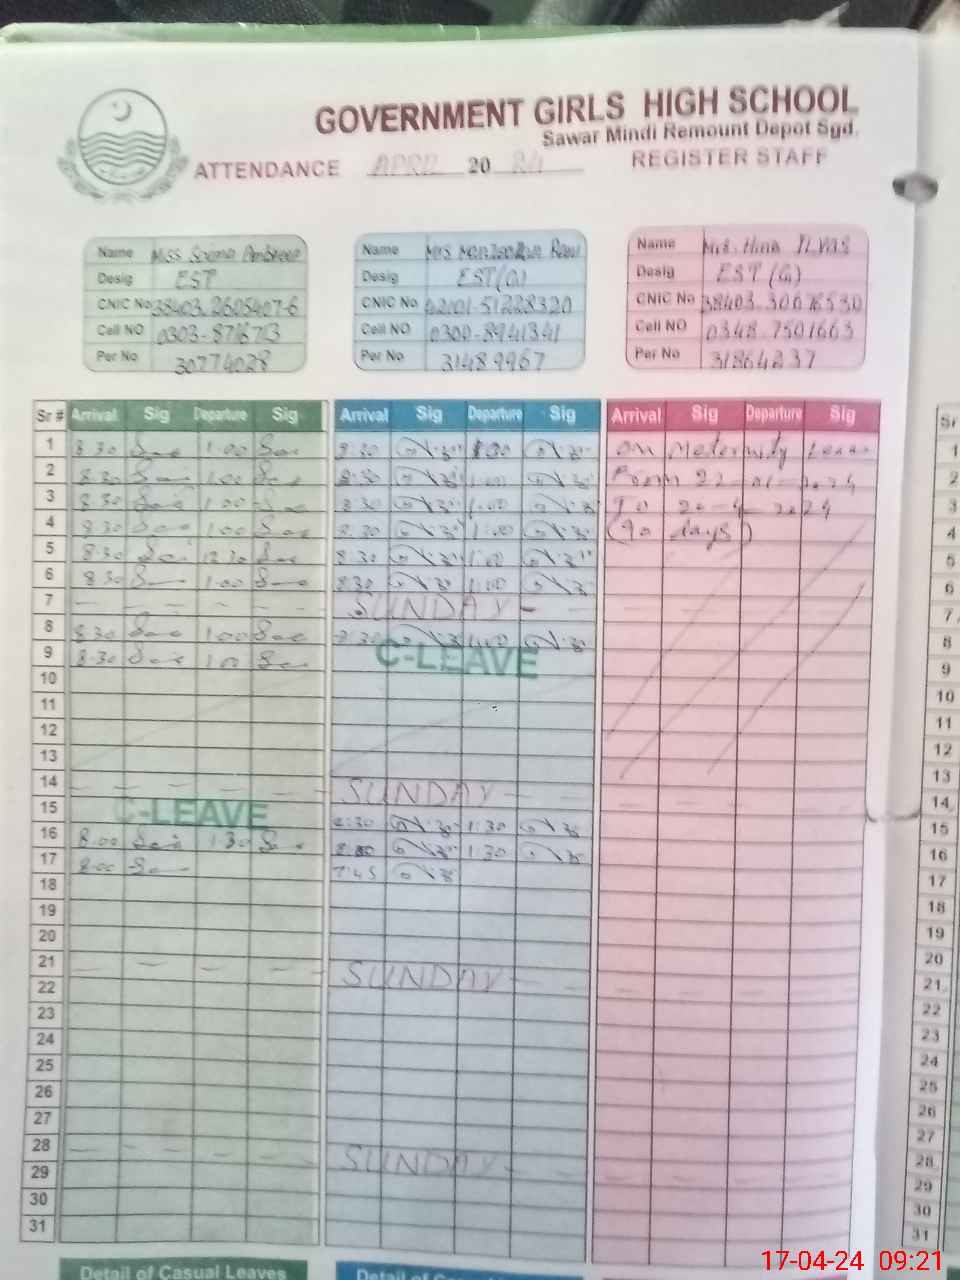 GOVERNMENT GIRLS HIGH SCHOOL
Sawar Mindi Remount Depot Sgd.
ATTENDANCE APRIL 20 24 REGISTER STAFF
Name Miss Saima Ambreen
Desig EST
CNIC No 38403.2605407-6
Cell NO
Per No 30774028
Name Mrs
Desig EST(G)
CNIC No 42101-51228320
Cell NO 0300-8941341
Per No 31489967
Name Mrs. Hina ILYAS
Desig EST (G)
CNIC No
Cell NO 0348.7501663
Per No 31864237
Sr # Arrival Sig Departure Sig Arrival Sig Departure Sig Arrival Sig Departure Sig Sr
1 8.30 1.00 8:30 1:00 on Meternity Leave 1
2 8.30 1.00 8:30 1:00 From 22-01-2024 2
3 8.30 1.00 8:30 1:00 To 20-4-2024 3
4 8.30 1.00 8:30 1:00 (90 days) 4
5 8.30 12.30 8:30 1:00 5
6 8.30 1.00 8:30 1:00 6
7 SUNDAY 7
8 8.30 1.00 8:30 1:00 8
9 8.30 1.00 C-LEAVE 9
10 10
11 11
12 12
13 13
14 SUNDAY 14
15 C-LEAVE 8:30 1:30 15
16 8.00 1.30 8:00 1:30 16
17 8.00 7:45 17
18 18
19 19
20 20
21 SUNDAY 21
22 22
23 23
24 24
25 25
26 26
27 27
28 SUNDAY 28
29 29
30 30
31 31
Detail of Casual Leaves Detail of
17-04-24 09:21